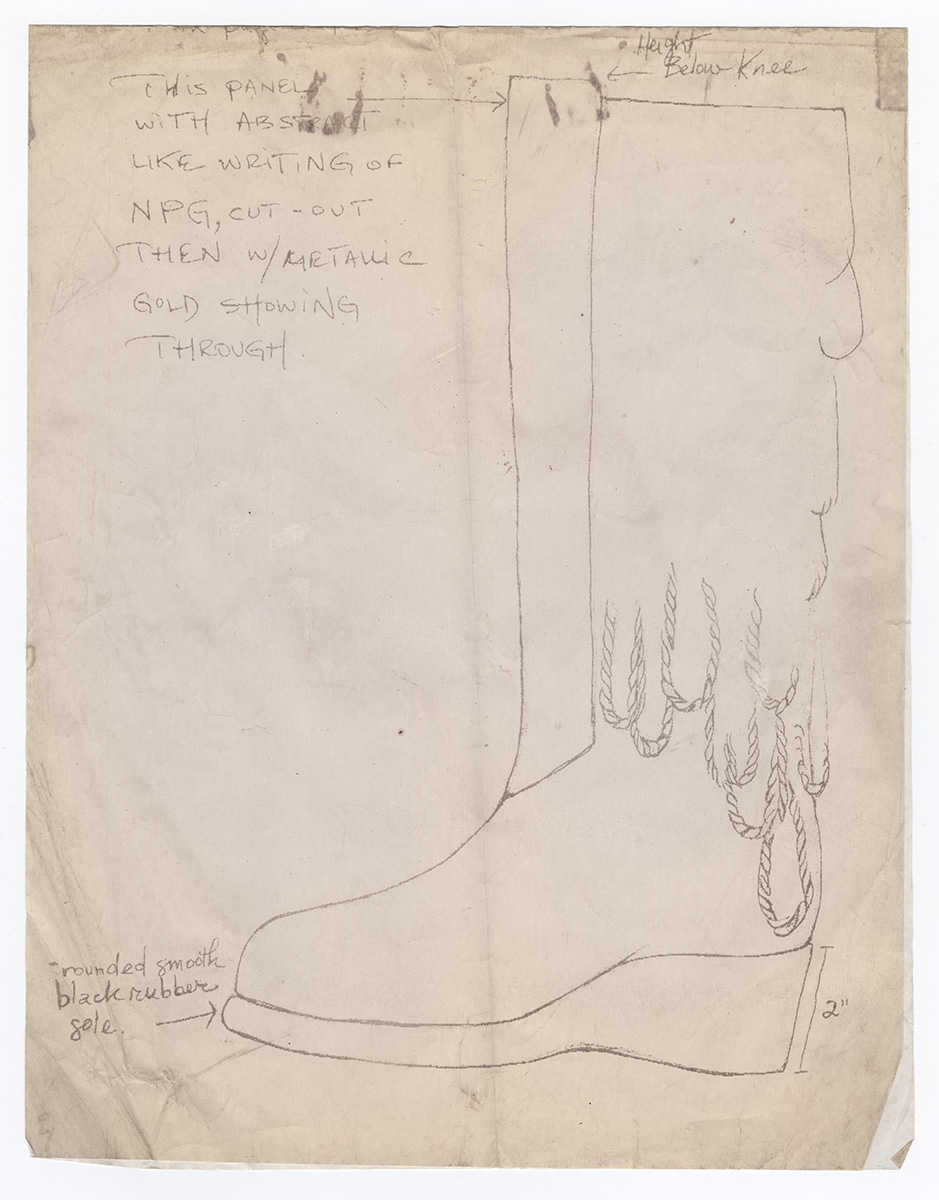 Height
Below Knee
THIS PANEL
WITH ABSTRACT
LIKE WRITING OF
NPG, CUT-OUT
THEN W/METALLIC
GOLD SHOWING
THROUGH.
-rounded smooth
black rubber
sole.
2"